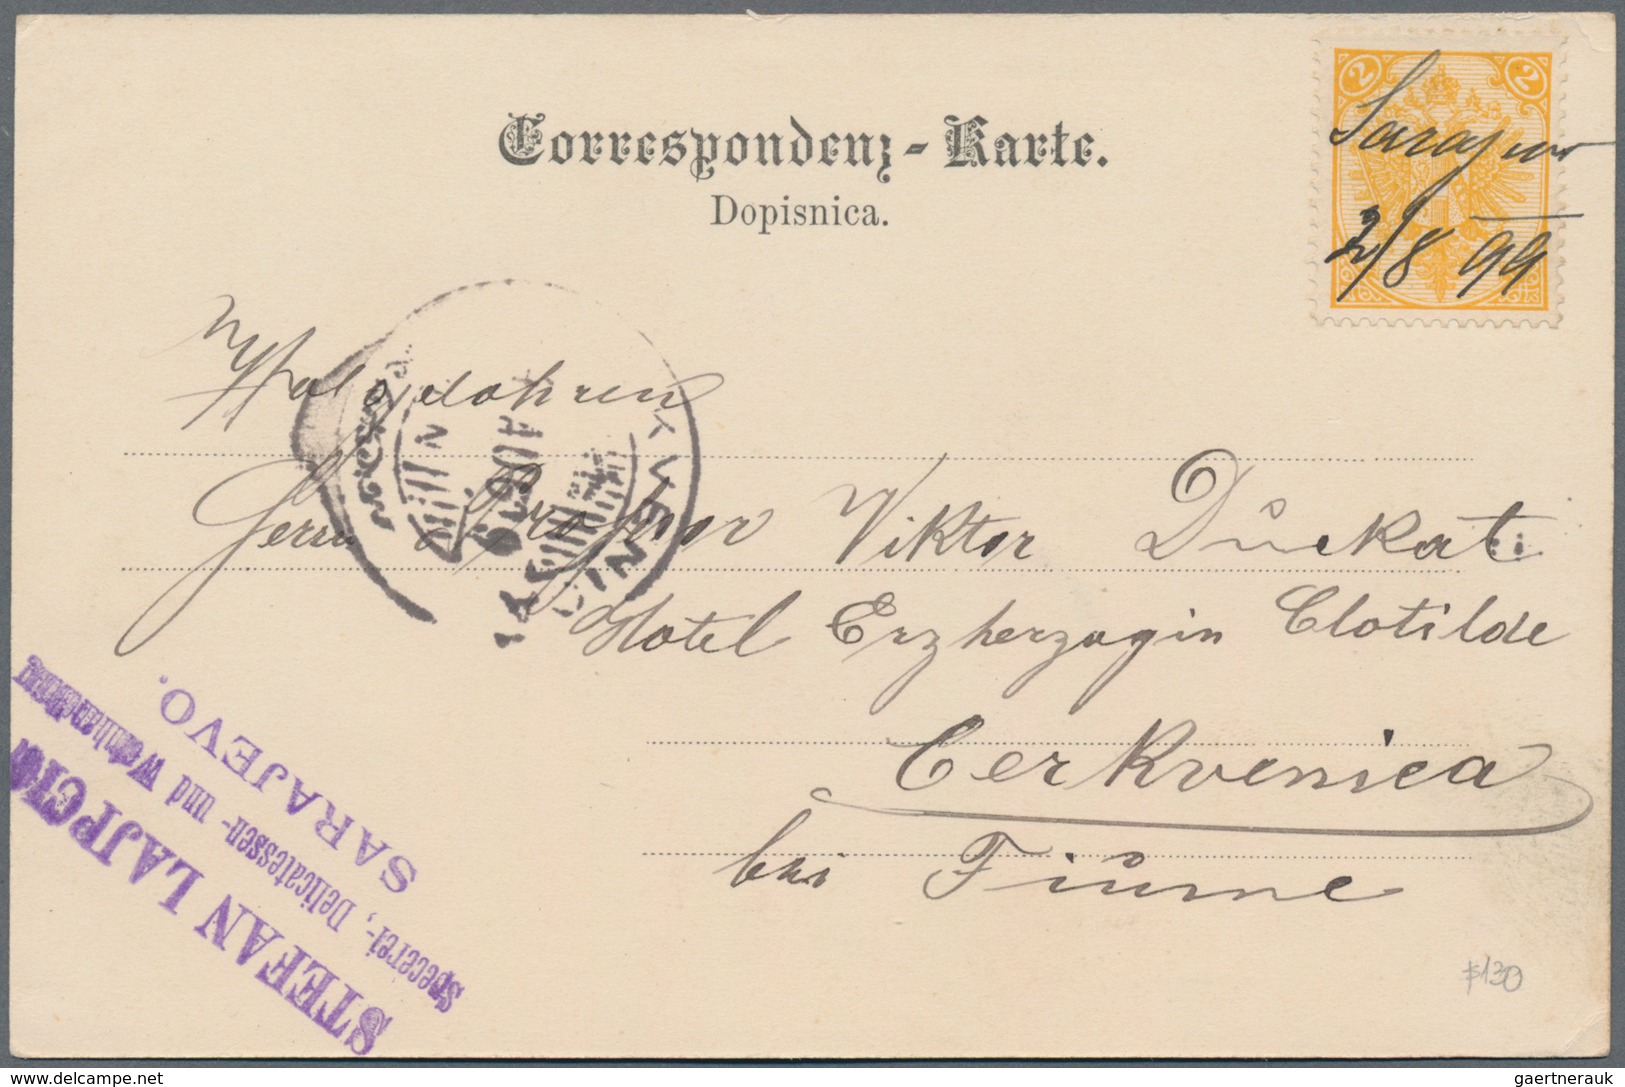 Correspondenz-Karte.
Dopisnica.
2 2
Sarajevo
2/8 99
Wohlgeboren
Herrn Professor Viktor Dŭckati
Hotel Erzherzogin Clotilde
Cerkvenica
bei Fiŭme
STEFAN LAJPCIG
Specerei-, Delicatessen- und Weinhandlung
SARAJEVO.
$130
delcampe.net
gaertnerauk